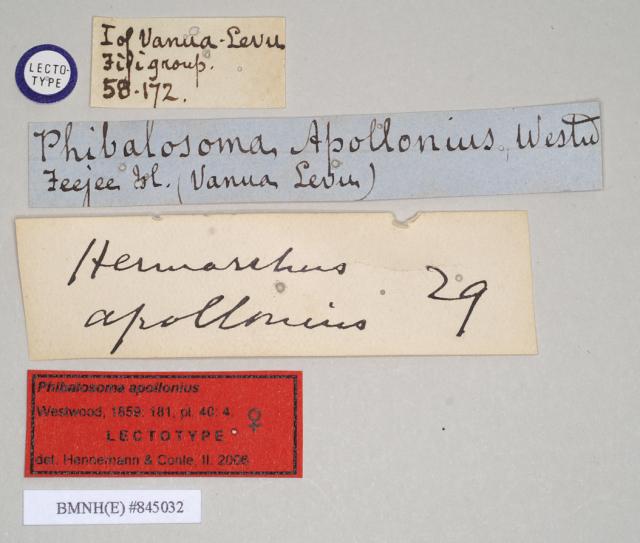 LECTO-
TYPE
I of Vanua-Levu
Fiji group.
58.172.
Phibalosoma Apollonius, Westw
Feejee Isl. (Vanua Levu)
Hermarchus 29
apollonius
Phibalosoma apollonius
Westwood, 1859: 181, pl. 40: 4.
LECTOTYPE ♀
det. Hennemann & Conle, II. 2006
BMNH(E) #845032